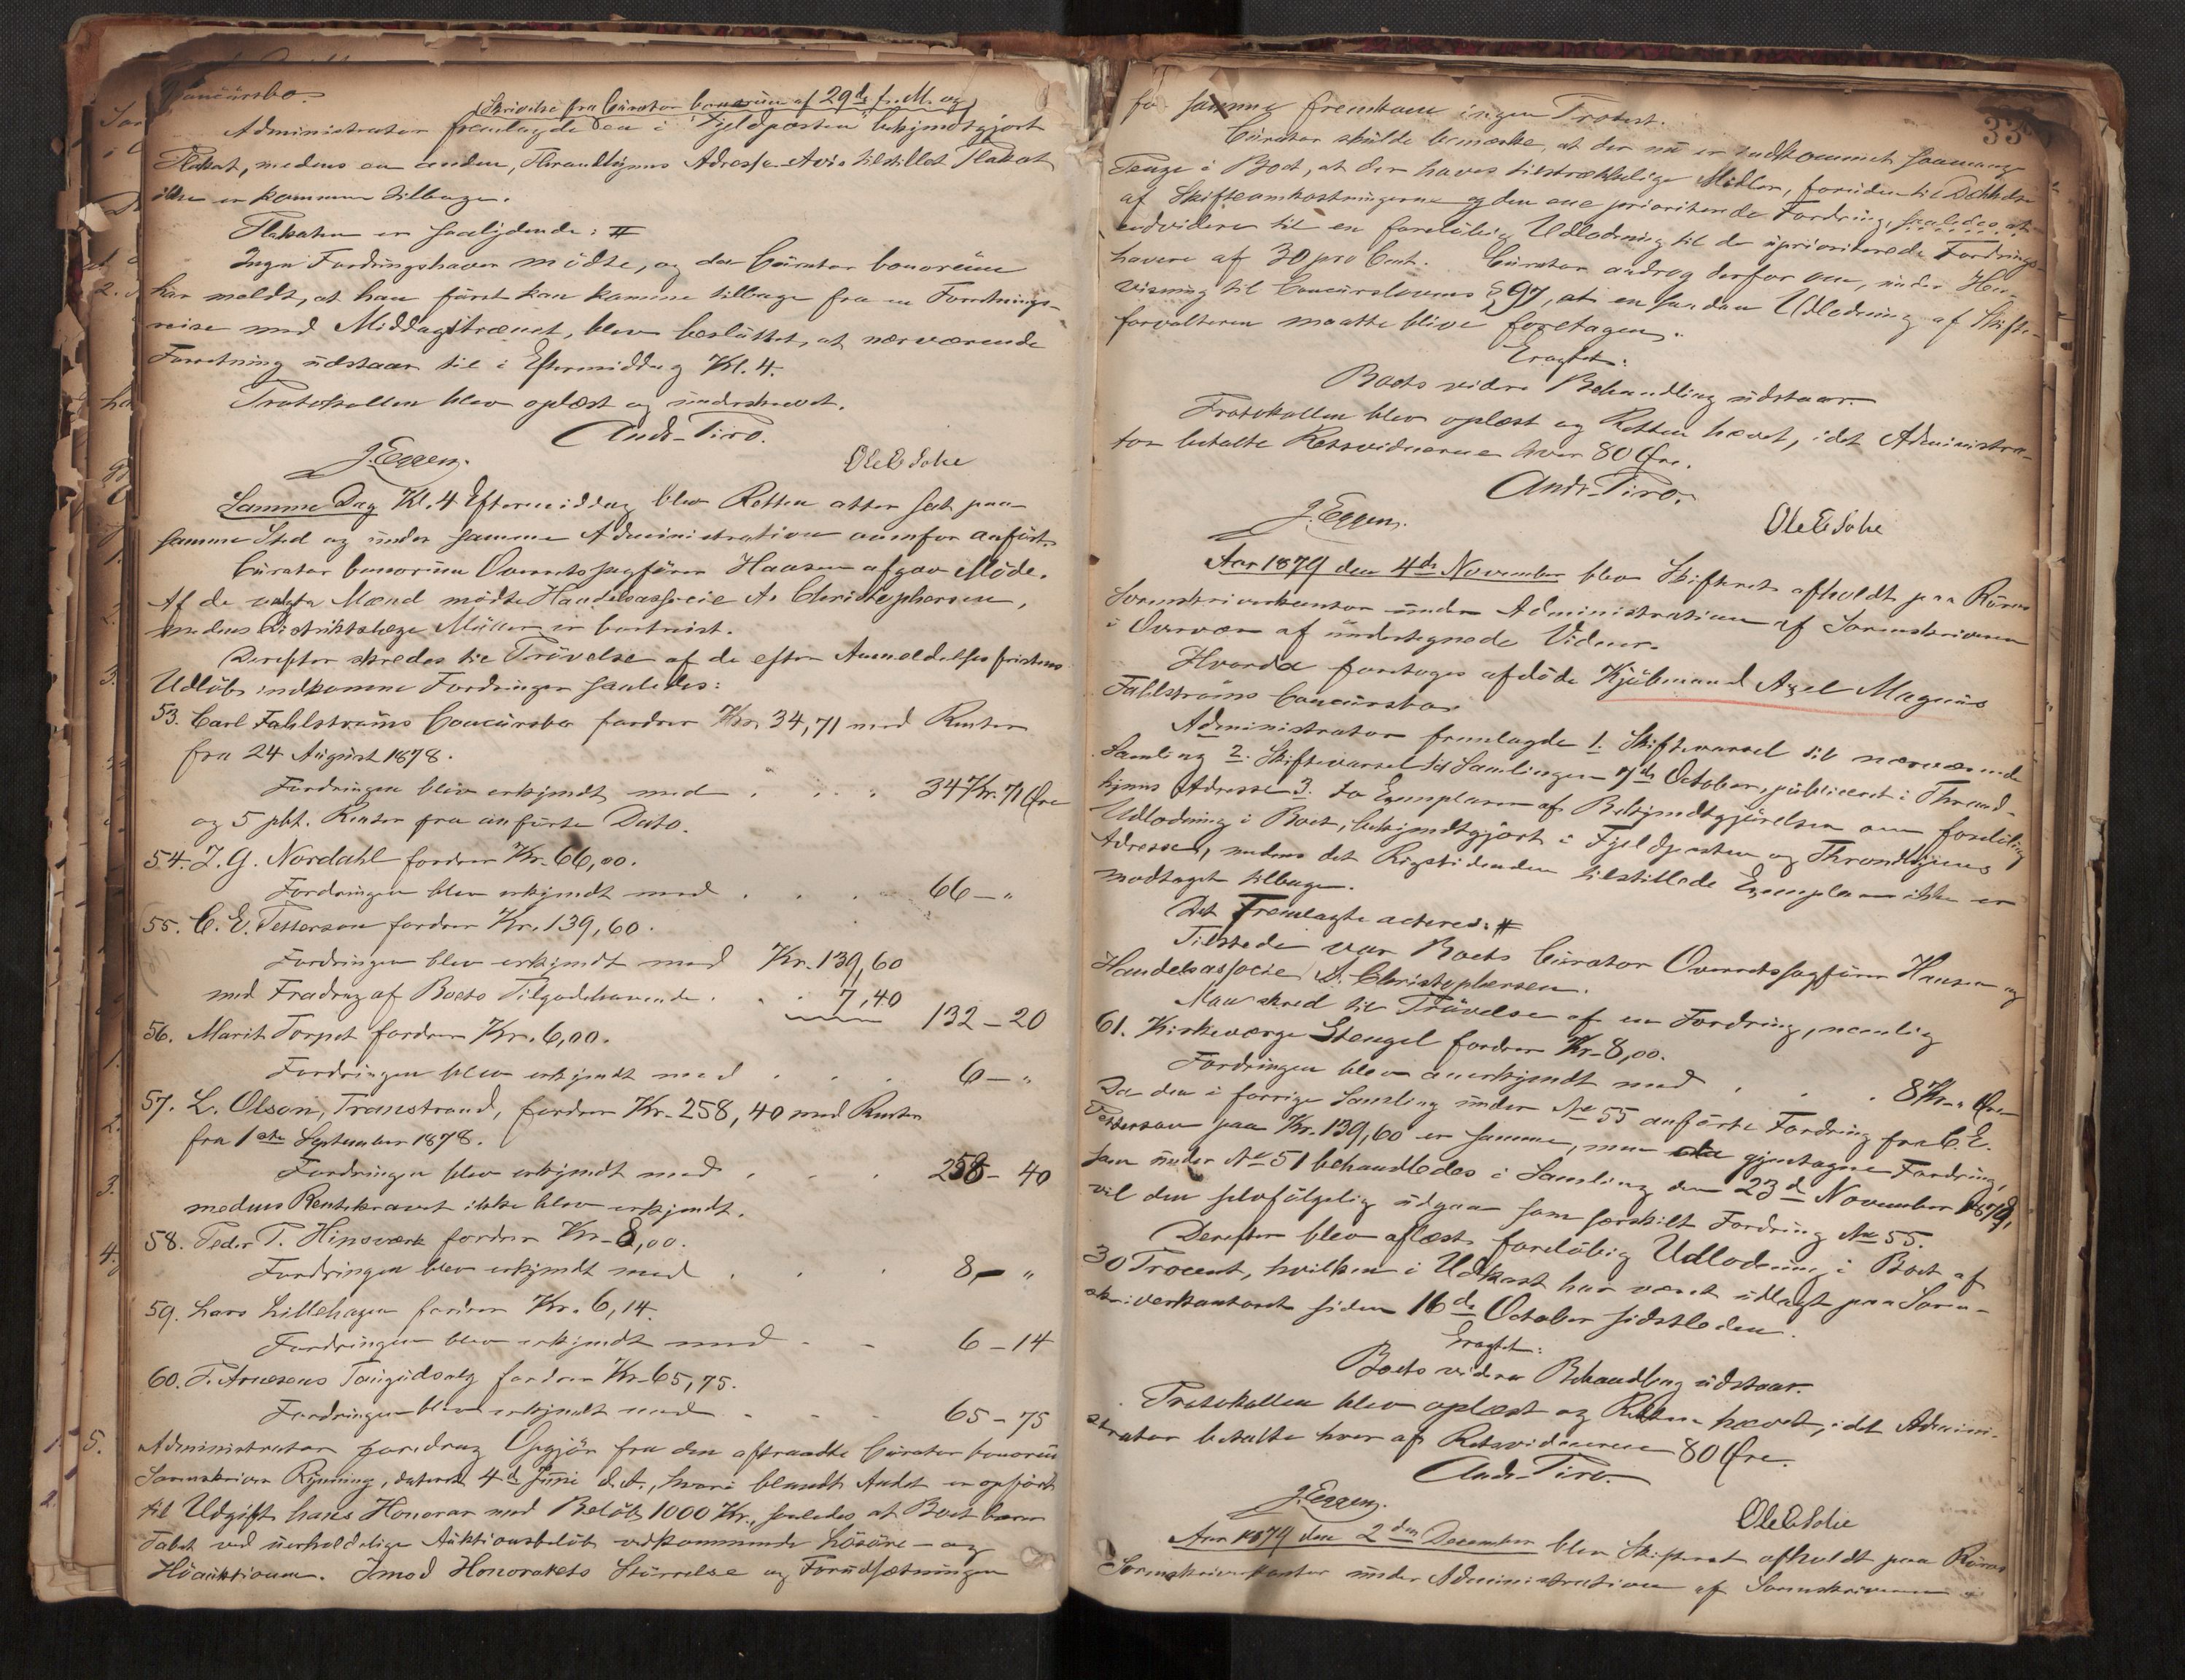 Concursbo.
Skrivelse fra Curator bonorum af 29de f. M. og
Administrator fremlagde en i "Fjeldposten" bekjendtgjort
Plakat, medens en anden, Throndhjems Adresse-Avis tilstillet Plakat
ikke er kommen tilbage.
Plakaten er saalydende: #
Ingen Fordringshaver mödte, og da Curator bonorum
har meldt, at han först kan komme tilbage fra en Forretnings-
reise med Middagstrænet, blev besluttet, at nærværende
Forretning udstaar til i Eftermiddag Kl. 4.
Protokollen blev oplæst og underskrevet.
Andr. Piro.
J. Eggen. Ole E Sohe
Samme Dag Kl. 4 Eftermiddag blev Retten atter sat paa
samme Sted og under samme Administration ovenfor anfört.
Curator bonorum Overretssagförer Hansen afgav Möde.
Af de valgte Mænd mödte Handelsassocie A. Christophersen,
medens Distriktslæge Müller er bortreist.
Derefter skredes til Prövelse af de efter Anmeldelsesfristens
Udlöb indkomne Fordringer saaledes:
53. Carl Fahlströms Concursbo fordrer Kr. 34,71 med Renter
fra 24 August 1878.
Fordringen blev erkjendt med . . . 34 Kr. 71 Øre
og 5 pCt. Renter fra anförte Dato.
54. J. G. Nordahl fordrer Kr. 66,00.
Fordringen blev erkjendt med . . . 66 - "
55. C. E. Petterson fordrer Kr. 139,60.
Fordringen blev erkjendt med Kr. 139,60
med Fradrag af Boets Tilgodehavende . . 7,40 132 - 20
56. Marit Torpet fordrer Kr. 6,00.
Fordringen blev erkjendt med . . . 6 - "
57. L. Olson, Transtrand, fordrer Kr. 258,40 med Renter
fra 1ste September 1878.
Fordringen blev erkjendt med . . . 258 - 40
medens Rentekravet ikke blev erkjendt.
58. Peder T. Hinsværk fordrer Kr. 8,00.
Fordringen blev erkjendt med . . . 8 - "
59. Lars Lillehagen fordrer Kr. 6,14.
Fordringen blev erkjendt med - - 6 - 14
60. P. Arnesens Taugudsalg fordrer Kr. 65,75.
Fordringen blev erkjendt med - - - 65 - 75
Administrator foredrag Opgjör fra den aftraadte Curator bonorum
Sorenskriver Rynning, dateret 4de Juni d. A., hvori blandt Andet er opfört
til Udgift hans Honorar med Belöb 1000 Kr., saaledes at Boet bærer
Tabet ved uerholdelige Auktionsbelöb vedkommende Lösöre- og
Höauktionen. Imod Honorarets Störrelse og Forudsætningen
33
for samme fremkom ingen Protest.
Curator skulde bemærke, at der nu er indkommet saamange
Penge i Boet, at der haves tilstrækkelige Midler, foruden til Dækkelse
af Skifteomkostningerne og den ene prioriterede Fordring, saaledes at
endvidere til en forelöbig Udlodning til de uprioriterede Fordrings-
havere af 30 pro Cent. Curator androg derfor om, under Hen-
visning til Concurslovens § 97, at en saadan Udlodning af Skifte-
forvalteren maatte blive foretagen.
Eragtet:
Boets videre Behandling udstaar.
Protokollen blev oplæst og Retten hævet, idet Administra-
tor betalte Retsvidnerne hver 80 Øre.
Andr. Piro.
J. Eggen. Ole E Sohe
Aar 1879 den 4de November blev Skifteret afholdt paa Röros
Sorenskriverkontor under Administration af Sorenskriveren
i Overvær af undertegnede Vidner.
Hvorda foretoges afdöde Kjöbmand Axel Magnus
Fahlströms Concursbo.
Administrator fremlagde 1. Skiftevarsel til nærværende
Samling 2. Skiftevarsel til Samlingen 7de October, publiceret i Thrond-
hjems Adresse 3. to Exemplarer af Bekjendtgjörelsen om forelöbig
Udlodning i Boet, bekjendtgjort i Fjeldposten og Throndhjems
Adresse, medens det Rigstidenden tilstillede Exemplar ikke er
modtaget tilbage.
Det Fremlagte acteres: #
Tilstede var Boets Curator Overretssagförer Hansen og
Handelsassocie A. Christophersen.
Man skred til Prövelse af en Fordring, nemlig
61. Kirkeværge Stengel fordrer Kr. 8,00.
Fordringen blev anerkjendt med . . . 8 Kr. " Øre
Da den i forrige Samling under No 55 anförte Fordring fra C. E.
Petterson paa Kr. 139,60 er samme, men gjentagne Fordring,
som under No 51 behandledes i Samling den 23de November 1878,
vil den selvfölgelig udgaa som særskilt Fordring No 55.
Derefter blev oplæst forelöbig Udlodning i Boet af
30 Procent, hvilken i Udkast har været udlagt paa Soren-
skriverkontoret siden 16de October sidstleden.
Eragtet:
Boets videre Behandling udstaar.
Protokollen blev oplæst og Retten hævet, idet Admini-
strator betalte hver af Retsvidnerne 80 Øre.
Andr. Piro.
J. Eggen. Ole E Sohe
Aar 1879 den 2den December blev Skifteret afholdt paa Röros
Sorenskriverkontor under Administration af Sorenskriveren i